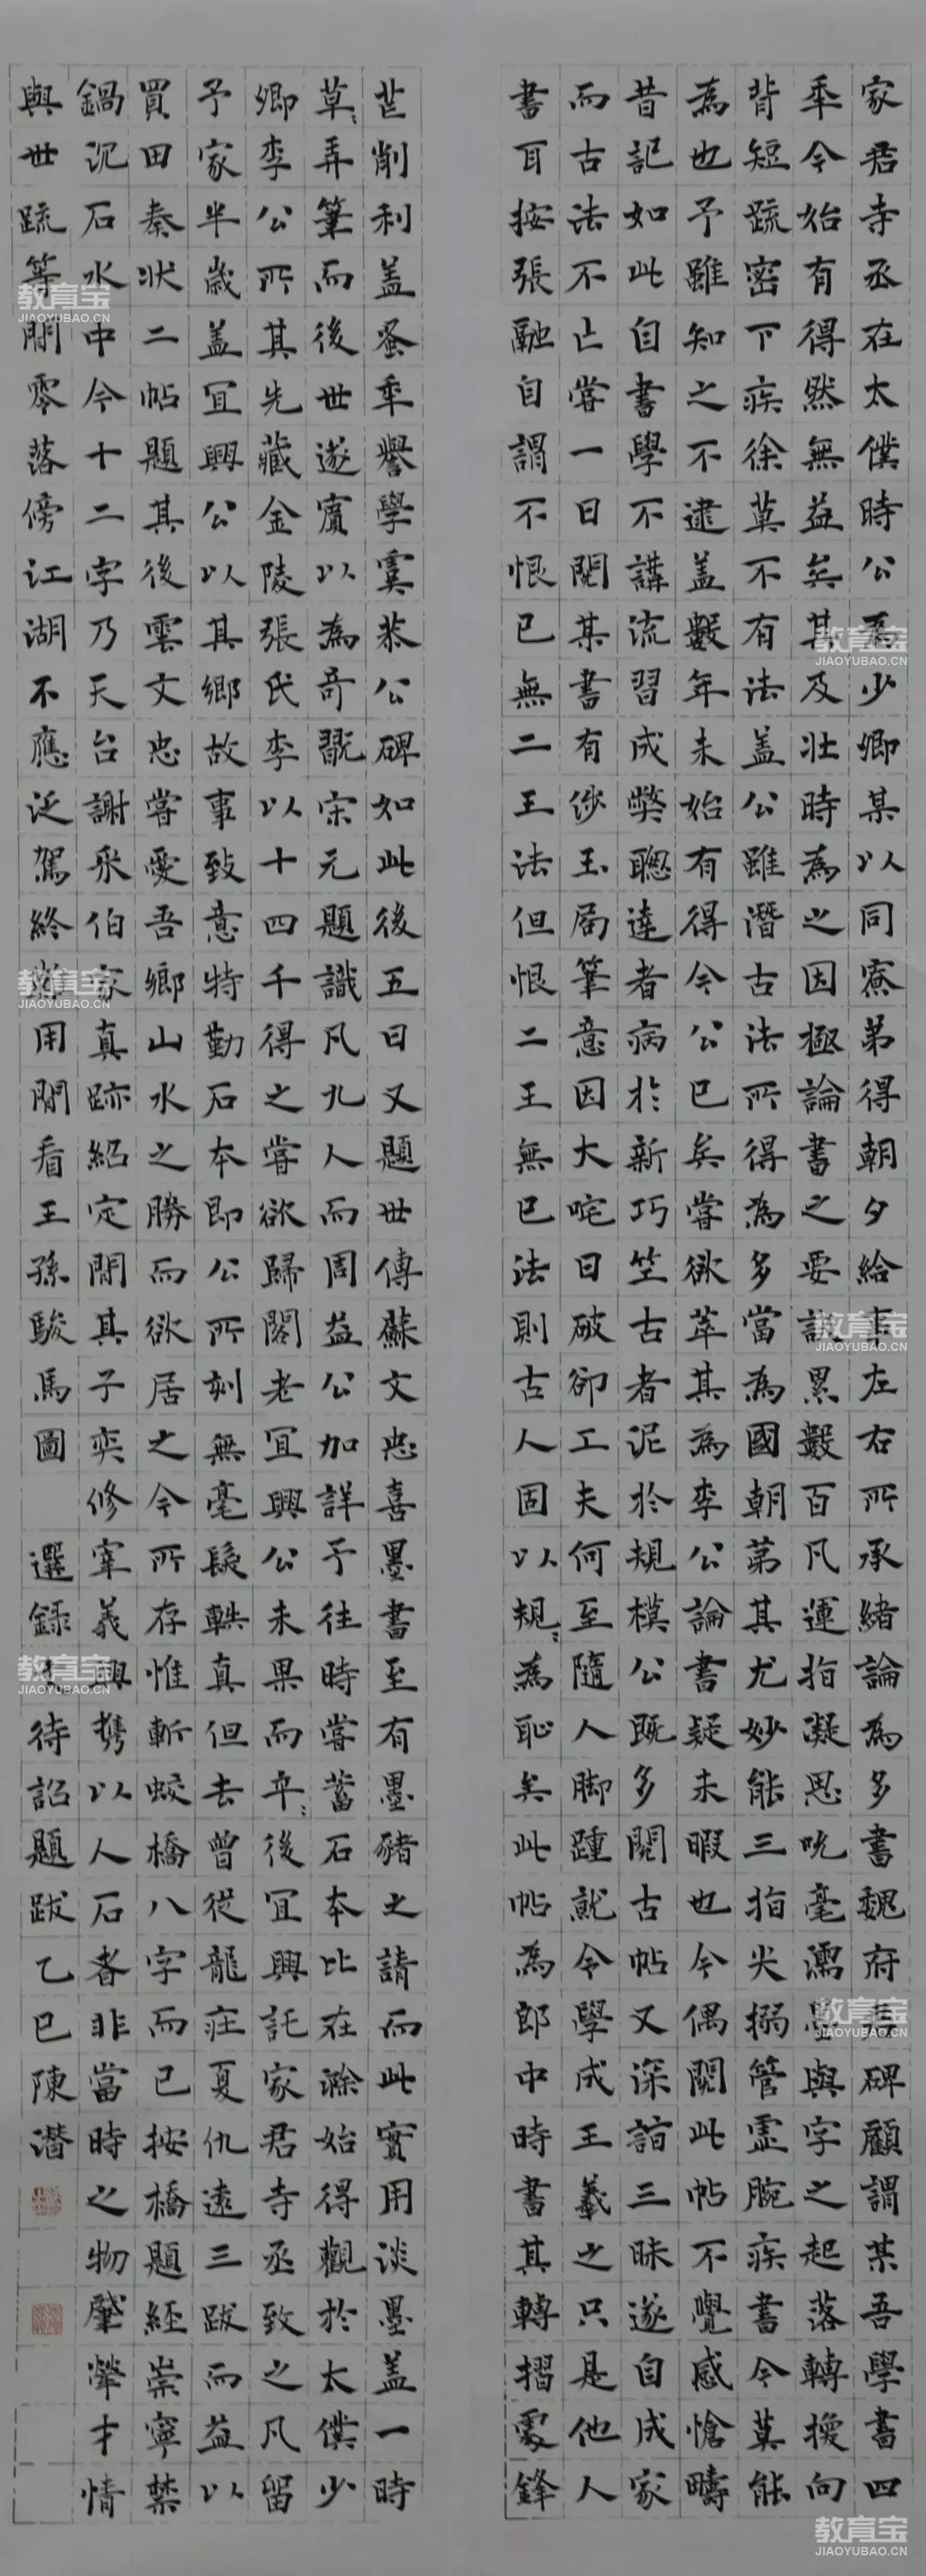 家君寺丞在太僕時公為少卿某以同寮弟得朝夕給事左右所承緒論為多書魏府君碑顧謂某吾學書四
秊今始有得然無益矣其及壯時為之因極論書之要訣累數百凡運指凝思吮毫濡墨與字之起落轉換向
背短疏密下疾徐莫不有法盖公雖潛古法所得為多當為國朝第其尤妙能三指尖搦管虛腕疾書今莫能
為也予雖知之不逮盖數年未始有得今公已矣嘗欲萃其為李公論書疑未暇也今偶閱此帖不覺感愴疇
昔記如此自書學不講流習成獘聰達者病於新巧竺古者泥於規模公既多閱古帖又深詣三昧遂自成家
而古法不亡嘗一日閱某書有涉玉局筆意因大咤曰破卻工夫何至隨人脚踵就令學成王羲之只是他人
書耳按張融自謂不恨已無二王法但恨二王無已法則古人固以規〻為恥矣此帖為郎中時書其轉摺處鋒
芒削利盖蚤秊譽學虞恭公碑如此後五日又題世傳蘇文忠喜墨書至有墨豬之請而此實用淡墨盖一時
草〻弄筆而後世遂寳以為奇翫宋元題識凡九人而周益公加詳予往時嘗蓄石本比在滁始得觀於太僕少
卿李公所其先藏金陵張氏李以十四千得之嘗欲歸閣老宜興公未果而卒〻後宜興託家君寺丞致之凡留
予家半歲盖宜興公以其鄉故事致意特勤石本即公所刻無毫髮軼真但去曾從龍莊夏仇遠三跋而益以
買田奏狀二帖題其後雲文忠嘗愛吾鄉山水之勝而欲居之今所存惟斬蛟橋八字而已按橋題經崇寧禁
鍋沉石水中今十二字乃天台謝采伯家真跡紹定間其子奕修宰義興携以人石者非當時之物肇犖才情
與世疏等閒零落傍江湖不應泛駕終難用閒看王孫駿馬圖 選錄文待詔題跋乙巳陳潛